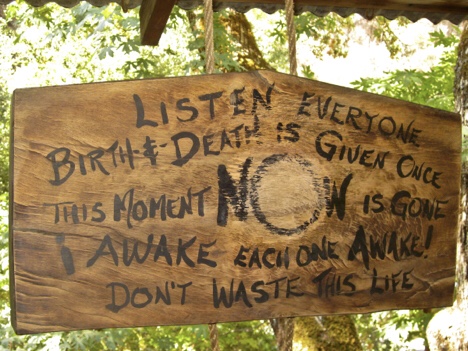 LISTEN EVERYONE
BIRTH & DEATH IS GIVEN ONCE
THIS MOMENT NOW IS GONE
¡ AWAKE EACH ONE AWAKE!
DON'T WASTE THIS LIFE